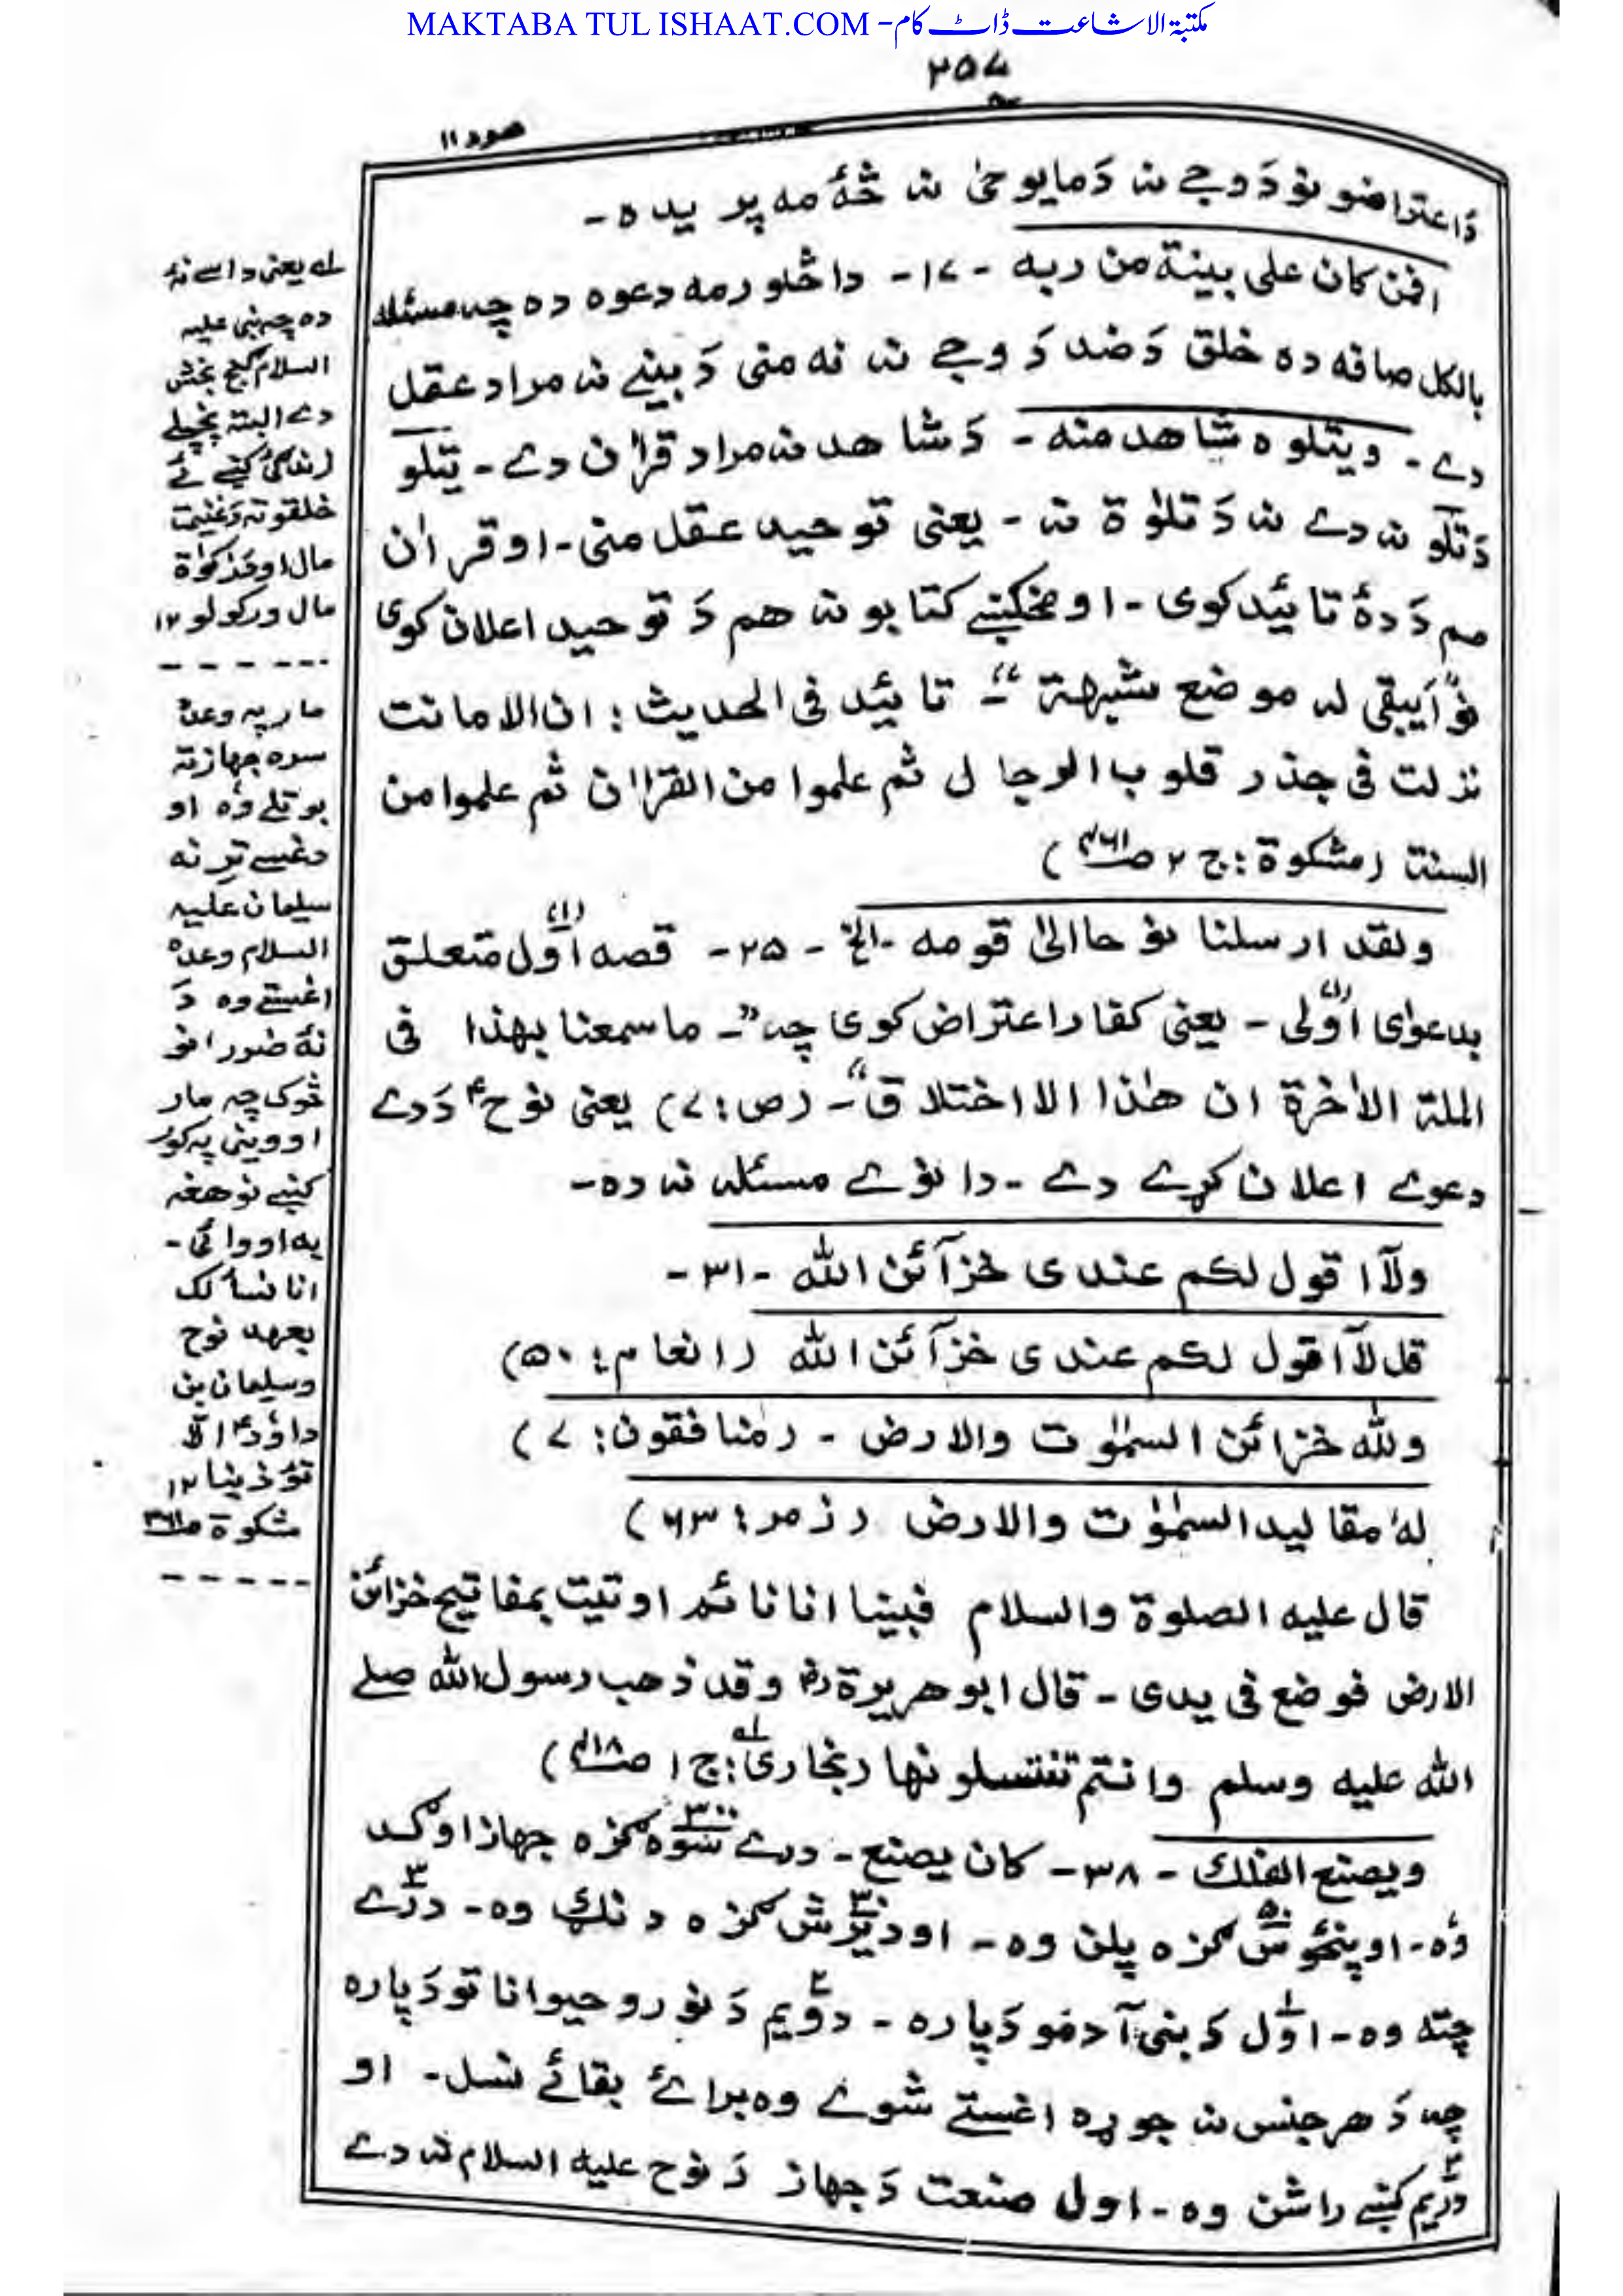 MAKTABA TUL ISHAAT.COM - مکتبۃ الاشاعت ڈاٹ کام
۲۵۷
ھود ۱۱
دَ اعتراضونو دَ وجے نہ دَ مایوحیٰ نہ څۀ مہ پریدہ -
افمن کان علی بینة من ربه - ۱۷ - دا څلورمه دعوہ دہ چہ مسئلہ
بالکل صافه ده خلق دَ ضد دَ وجے نہ نه منی دَ بینے نہ مراد عقل
دے - ویتلوہ شاھد منه - دَ شاھد نہ مراد قراٰن دے - یتلو
دَ تلو نہ دے نہ دَ تلٰوة نہ - یعنی توحید عقل منی - او قراٰن
ھم دَ دۀ تائید کوی - او مخکینے کتابونہ ھم دَ توحید اعلان کوی
نو "اَیبقی لہ موضع شبهة" - تائید فی الحدیث : ان الامانت
نزلت فی جذر قلوب الرجال ثم علموا من القراٰن ثم علموا من
السنة (مشکوة : ج ۲ صـ۴۶۱)
ولقد ارسلنا نوحا الیٰ قومه - الخ - ۲۵ - قصه اوّل (۱) متعلق
بدعوٰی اوّلی (۱) - یعنی کفار اعتراض کوی چہ "- ما سمعنا بهذا فی
الملة الاٰخرة ان هٰذا الا اختلاق" - (ص : ۷) یعنی نوحؑ دَ دے
دعوے اعلان کړے دے - دا نوے مسئلہ نہ دہ -
ولآ اقول لکم عندی خزآئن اللّٰہ - ۳۱ -
قل لآ اقول لکم عندی خزآئن اللّٰہ (انعام : ۵۰)
وللّٰہ خزائن السمٰوٰت والارض - (منافقون : ۷)
لهٗ مقالید السمٰوٰت والارض (زمر : ۶۳)
قال علیه الصلوة والسلام فبینا انا نائم اوتیت بمفاتیح خزائن
الارض فوضع فی یدی - قال ابوهریرة رضؓ وقد ذھب رسول اللّٰہ صلے
اللّٰہ علیه وسلم وانتم تنتسلونها (بخاری لـه : ج ۱ صـ۴۱۸)
ویصنع الفلك - ۳۸ - کان یصنع - درے سوہ ۳۰۰ گزہ جهاز اوګد
وُہ - او پنځوس ۵۰ گزہ پلن وہ - او دیرش ۳۰ گزہ دنګ وہ - درے ۳
چته وہ - اوّل ۱ دَ بنی آدمو دَپارہ - دوّیم ۲ دَ نورو حیواناتو دَپارہ
چہ دَ هر جنس نہ جوړہ اغستے شوے وہ برائے بقائے نسل - او
دریّم ۳ کښے راشن وہ - اول صنعت دَ جهاز دَ نوح علیه السلام نہ دے
لـه یعنی داسے نۀ
دہ چہ نبی علیه
السلام گنج بخش
دے البته پخپلے
زندگئ کښے ئے
خلقوته دَ غنیمت
مال او دَ زکوٰة
مال ورکولو ۱۲
مار په وعدہ
سرہ جهاز ته
بوتلے وُہ او
دغسے ترنه
سلیمان علیه
السلام وعدہ
اغستے وہ دَ
نۀ ضرر نو
څوک چہ مار
اووینی په کور
کښے نو هغه
په اووائی -
انا نسألک
بعهد نوح
وسلیمان بن
داؤدؑ الا
تؤذینا ۱۲
مشکوة صـ۳۶۱